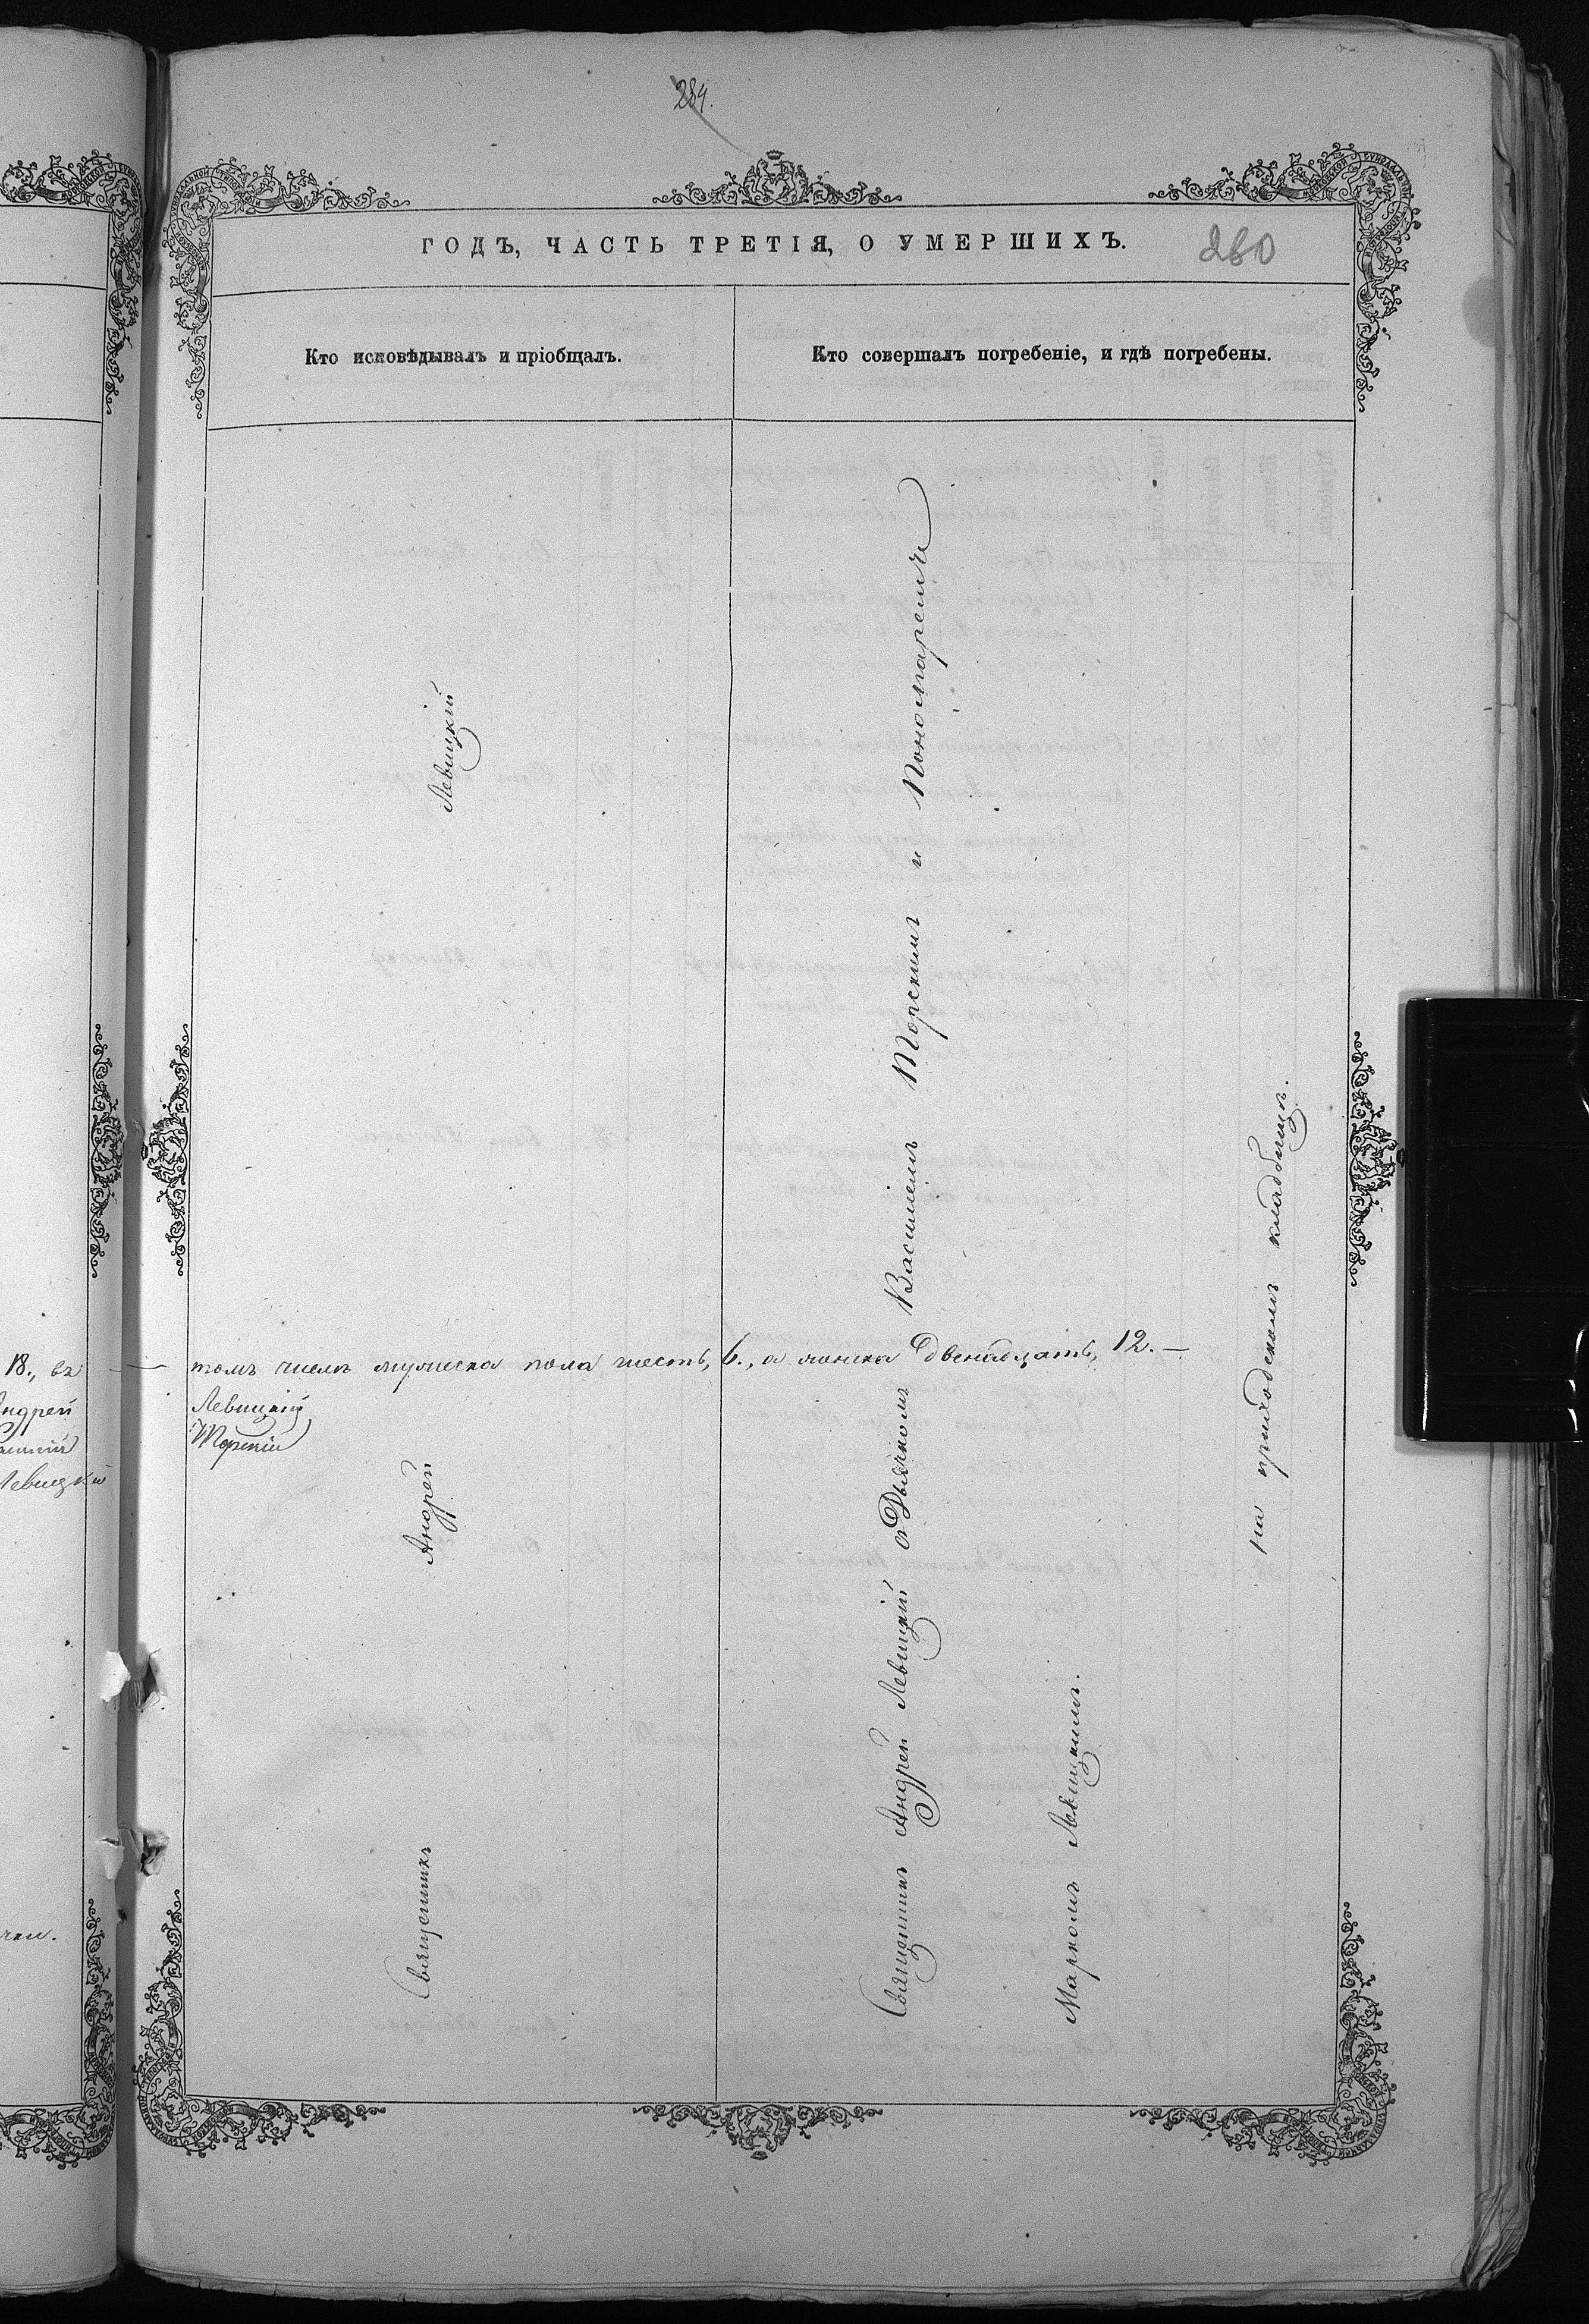 284.
ГОДЪ, ЧАСТЬ ТРЕТІЯ, О УМЕРШИХЪ.
260
Кто исповѣдывалъ и пріобщалъ.
Кто совершалъ погребеніе, и гдѣ погребены.
Священникъ Андрей Левицкій
Священникъ Андрей Левицкій съ Дьячкомъ Василіемъ Торскимъ и Пономаремъ
Маркомъ Левицкимъ.
на приходскомъ кладбищѣ.
18., въ томъ числѣ мужеска пола шесть, 6., а женска двенадцать, 12. —
Андрей Левицкій
Торскій
Левицкій